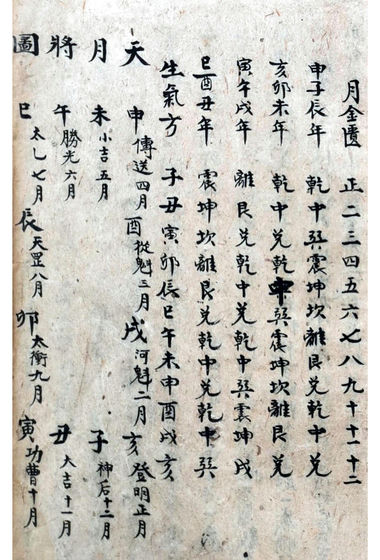 月金匱 正二三四五六七八九十十一十二
申子辰年 乾中巽震坤坎離艮兌乾中兌
亥卯未年 乾中兌乾中巽震坤坎離艮兌
寅午戌年 離艮兌乾中兌乾中巽震坤戌
巳酉丑年 震坤坎離艮兌乾中兌乾中巽
生氣方 子丑寅卯辰巳午未申酉戌亥
天月將圖
申傳送四月 酉從魁三月 戌河魁二月 亥登明正月
未小吉五月 子神后十二月
午勝光六月 丑大吉十一月
巳太乙七月 辰天罡八月 卯太衝九月 寅功曹十月